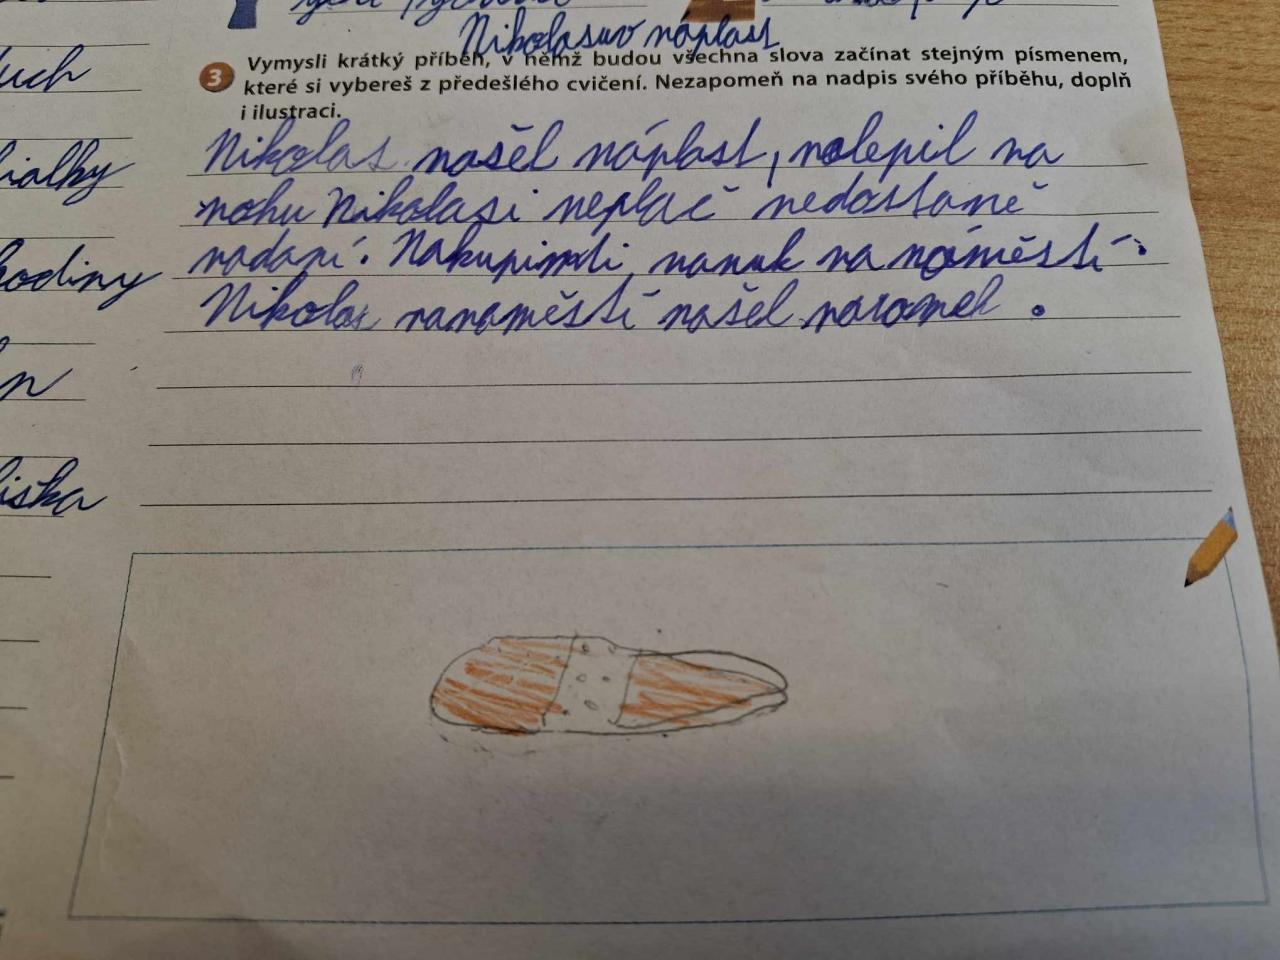 Nikolasuv náplast
3 Vymysli krátký příběh, v němž budou všechna slova začínat stejným písmenem,
které si vybereš z předešlého cvičení. Nezapomeň na nadpis svého příběhu, doplň
i ilustraci.
uch
Nikolas našel náplast, nalepil na
ialky
nohu Nikolasi neplač nedostaně
nadaní. Nakupimti nanuk na náměstí.
hodiny
Nikolas nanaměstí našel
n
iska